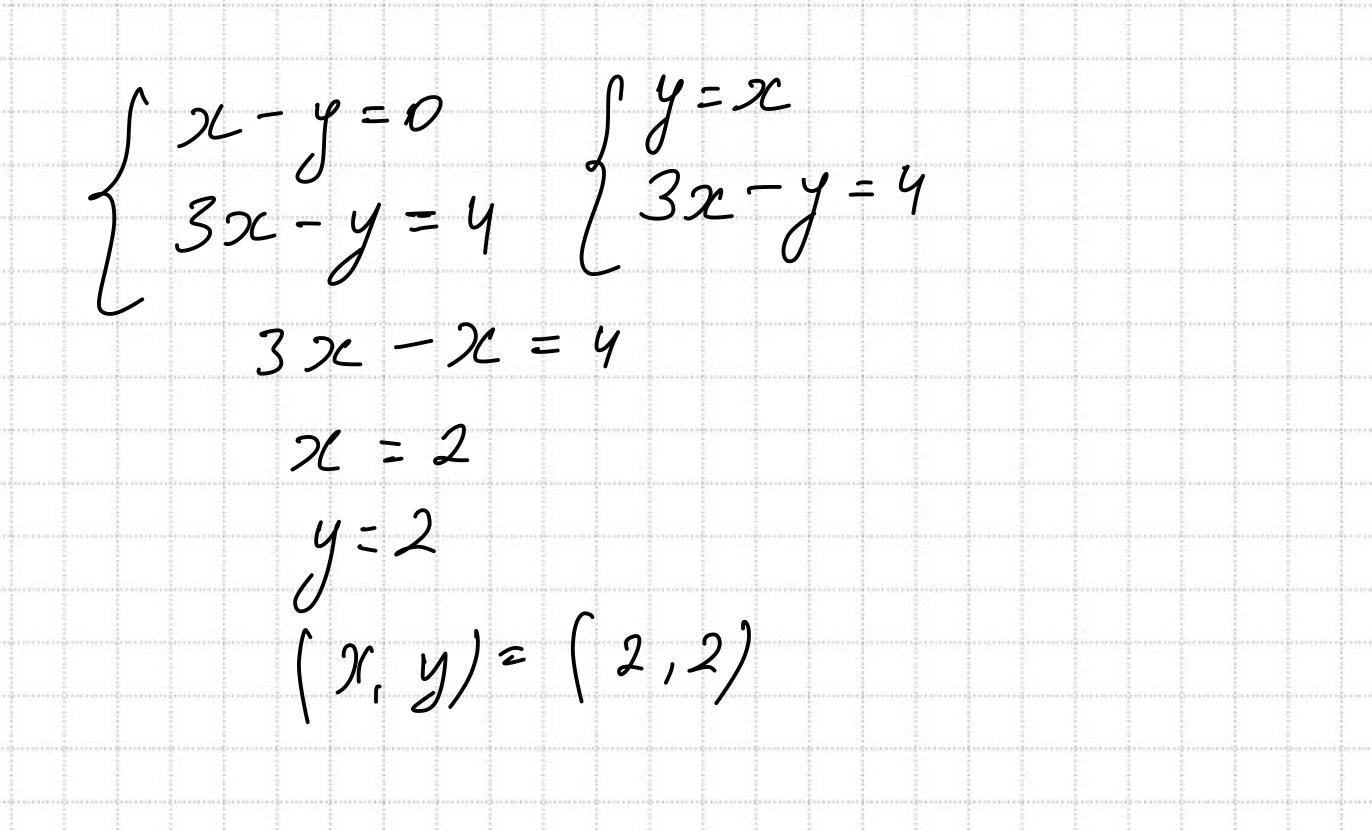 x - y = 0
3x - y = 4
y = x
3x - y = 4
3x - x = 4
x = 2
y = 2
(x, y) = (2, 2)